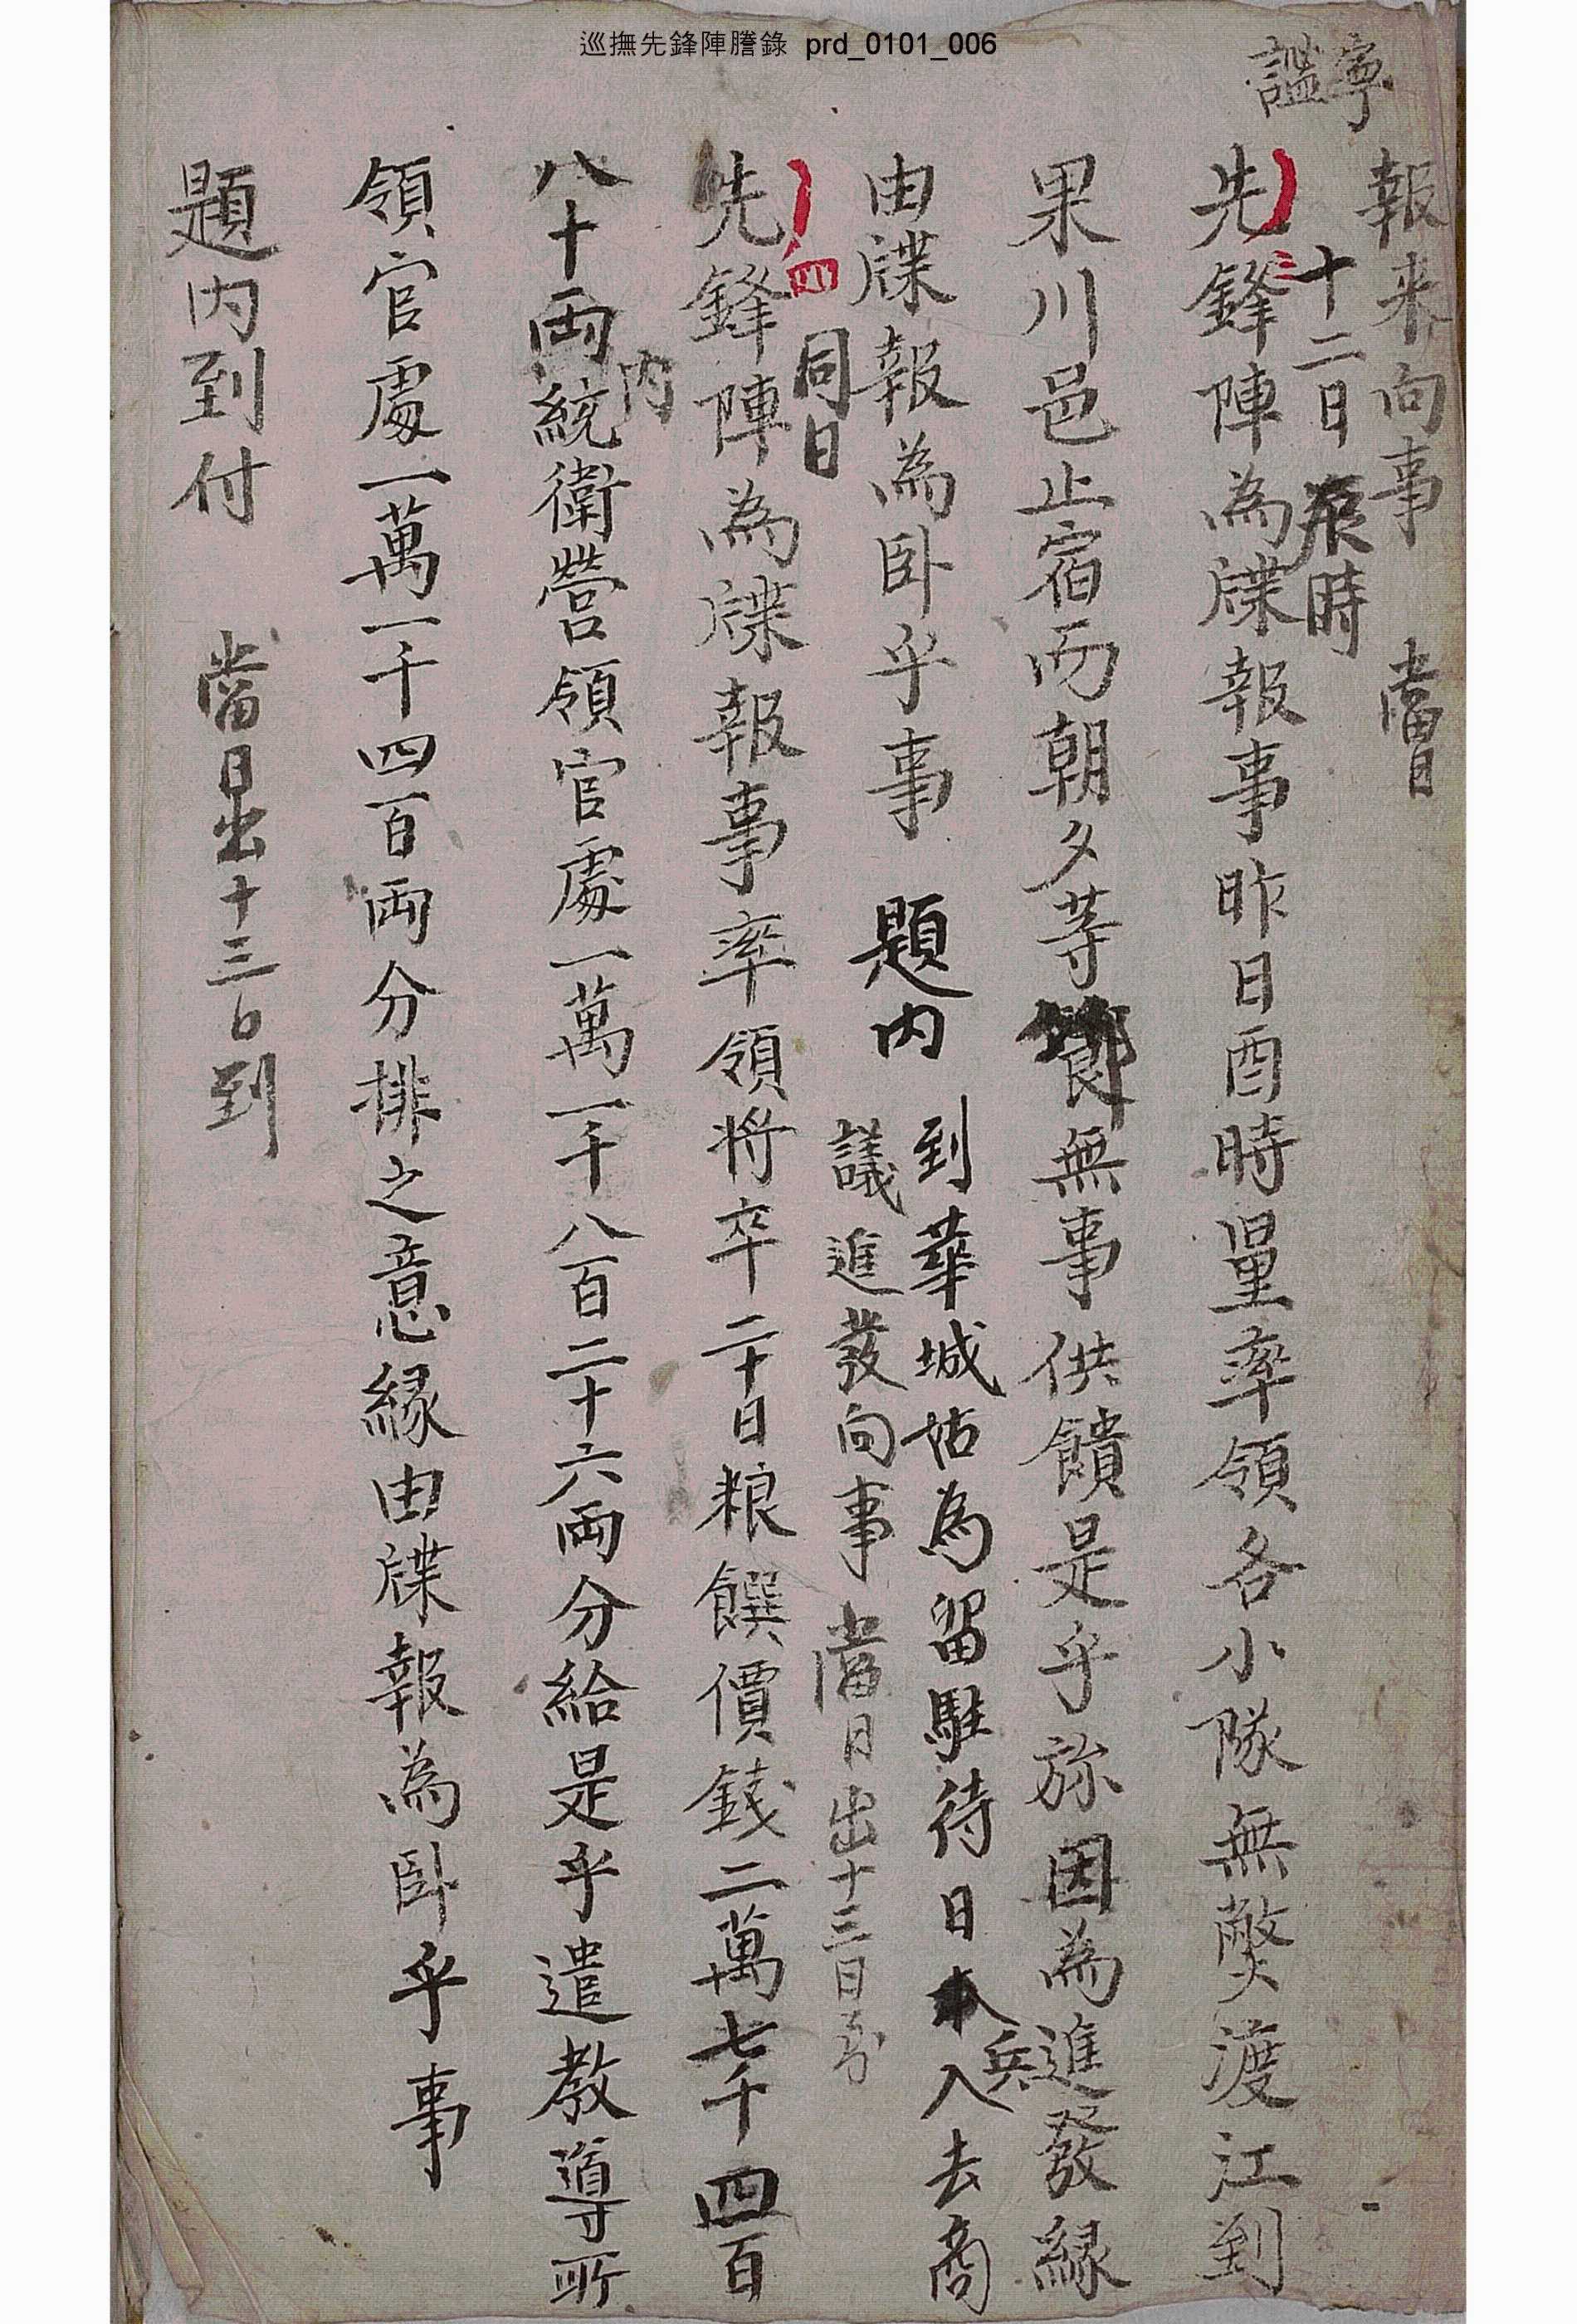 巡撫先鋒陣謄錄 prd_0101_006
寧
謐
報来向事 當日
十二日辰時
三
先鋒陣為牒報事昨日酉時量率領各小隊無弊渡江到
果川邑止宿而朝夕等節無事供饋是乎旀因為進發緣
由牒報為臥乎事 題内 到華城姑為留駐待日兵入去商
議進發向事 當日出十三日到
四
同日
先鋒陣為牒報事率領將卒二十日粮饌價錢二萬七千四百
八十兩内統衛營領官處一萬一千八百二十六兩分給是乎遣教導所
領官處一萬一千四百兩分排之意緣由牒報為臥乎事
題内到付 當日出十三日到